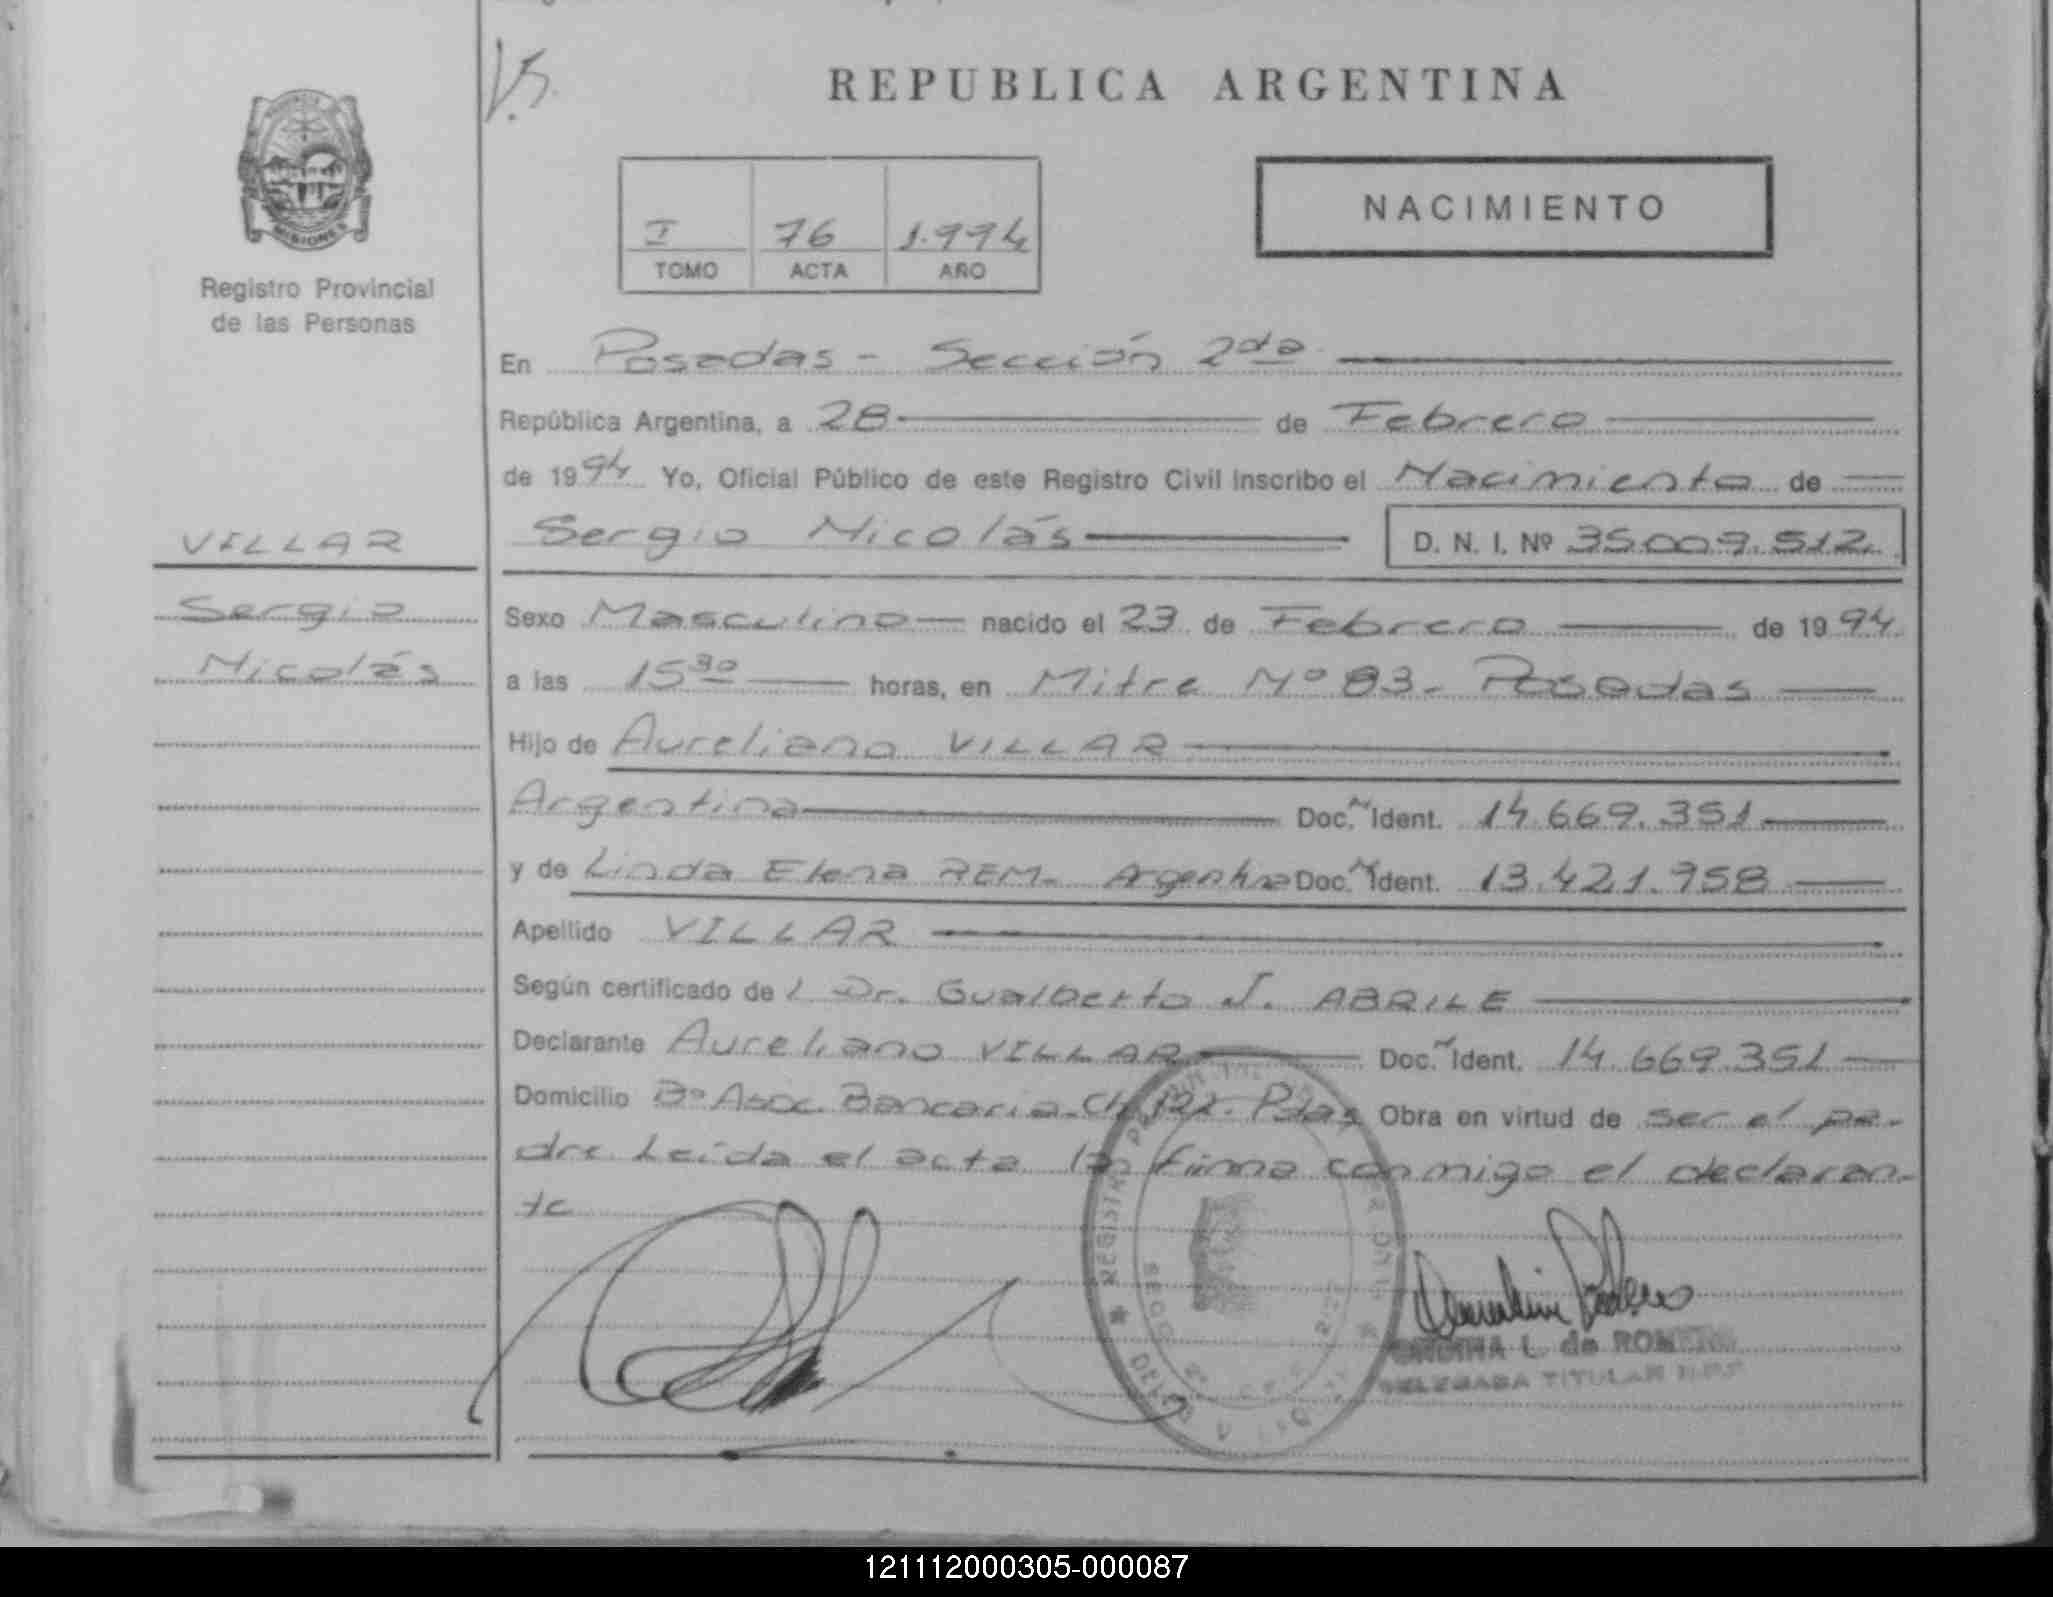 V.B.
REPUBLICA ARGENTINA
MISIONES
Registro Provincial
de las Personas
I 76 1.994
TOMO ACTA AÑO
NACIMIENTO
En Posadas - Sección 2da
República Argentina, a 28 de Febrero
de 1994 Yo, Oficial Público de este Registro Civil inscribo el Nacimiento de
VILLAR
Sergio Nicolás D. N. I. Nº 35.009.512.
Sergio
Nicolás
Sexo Masculino nacido el 23 de Febrero de 1994.
a las 15³⁰ horas, en Mitre Nº 83- Posadas
Hijo de Aureliano VILLAR
Argentina Doc. N Ident. 14.669.351
y de Linda Elena REM- Argentina Doc. N Ident. 13.421.958
Apellido VILLAR
Según certificado de l Dr. Gualberto J. ABRILE
Declarante Aureliano VILLAR Doc. N Ident. 14.669.351
Domicilio Bº Asoc. Bancaria-Ch. 122- Pdas Obra en virtud de ser el pa-
dre Leída el acta la firma conmigo el declaran-
te
L. de ROMERO
DELEGADA TITULAR
121112000305-000087